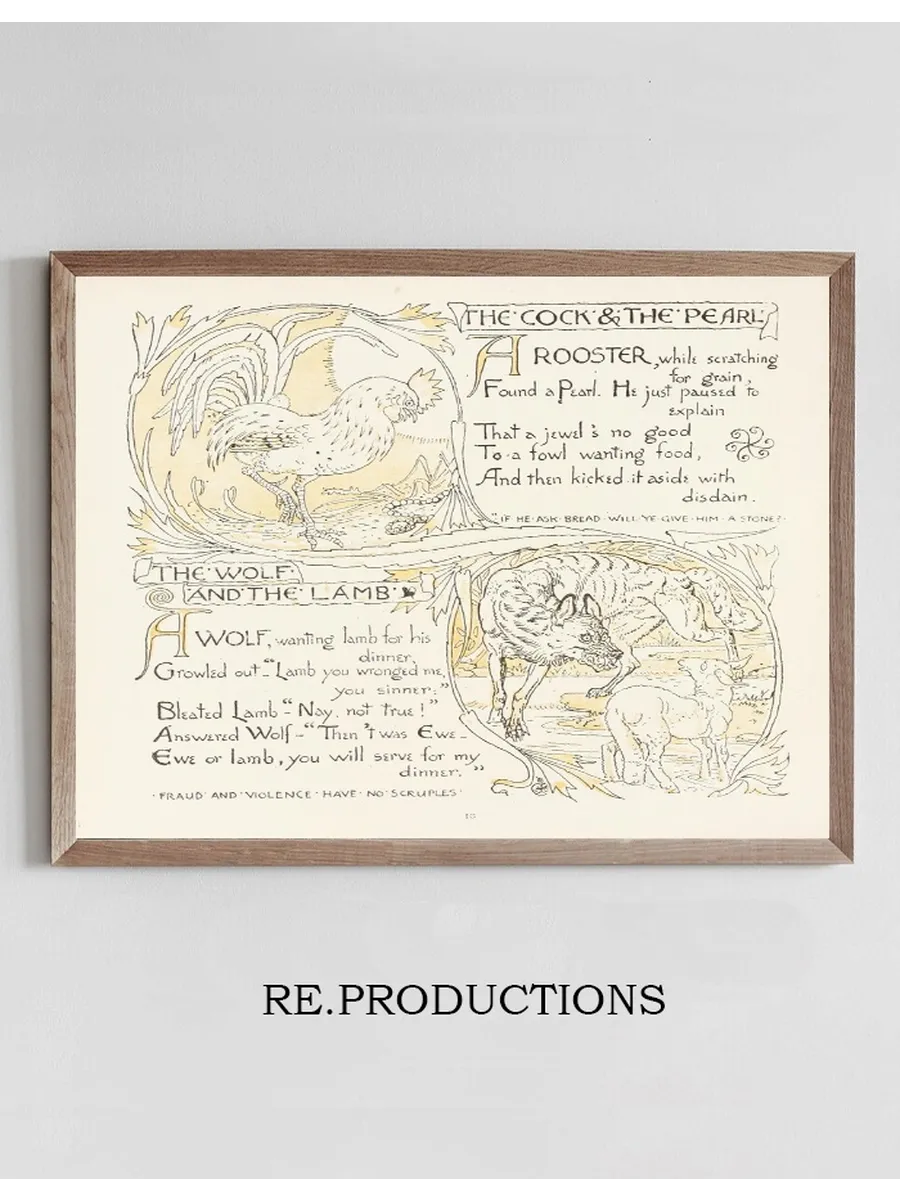 THE·COCK·&·THE·PEARL·
A ROOSTER, while scratching
for grain,
Found a Pearl. He just paused to
explain
That a jewel's no good
To a fowl wanting food,
And then kicked it aside with
disdain.
"IF HE ASK BREAD WILL YE GIVE HIM A STONE?"
THE·WOLF·
AND·THE·LAMB·
A WOLF, wanting lamb for his
dinner,
Growled out—"Lamb you wronged me,
you sinner:"
Bleated Lamb—"Nay, not true!"
Answered Wolf—"Then 't was Ewe—
Ewe or lamb, you will serve for my
dinner."
·FRAUD·AND·VIOLENCE·HAVE·NO·SCRUPLES·
10
RE.PRODUCTIONS